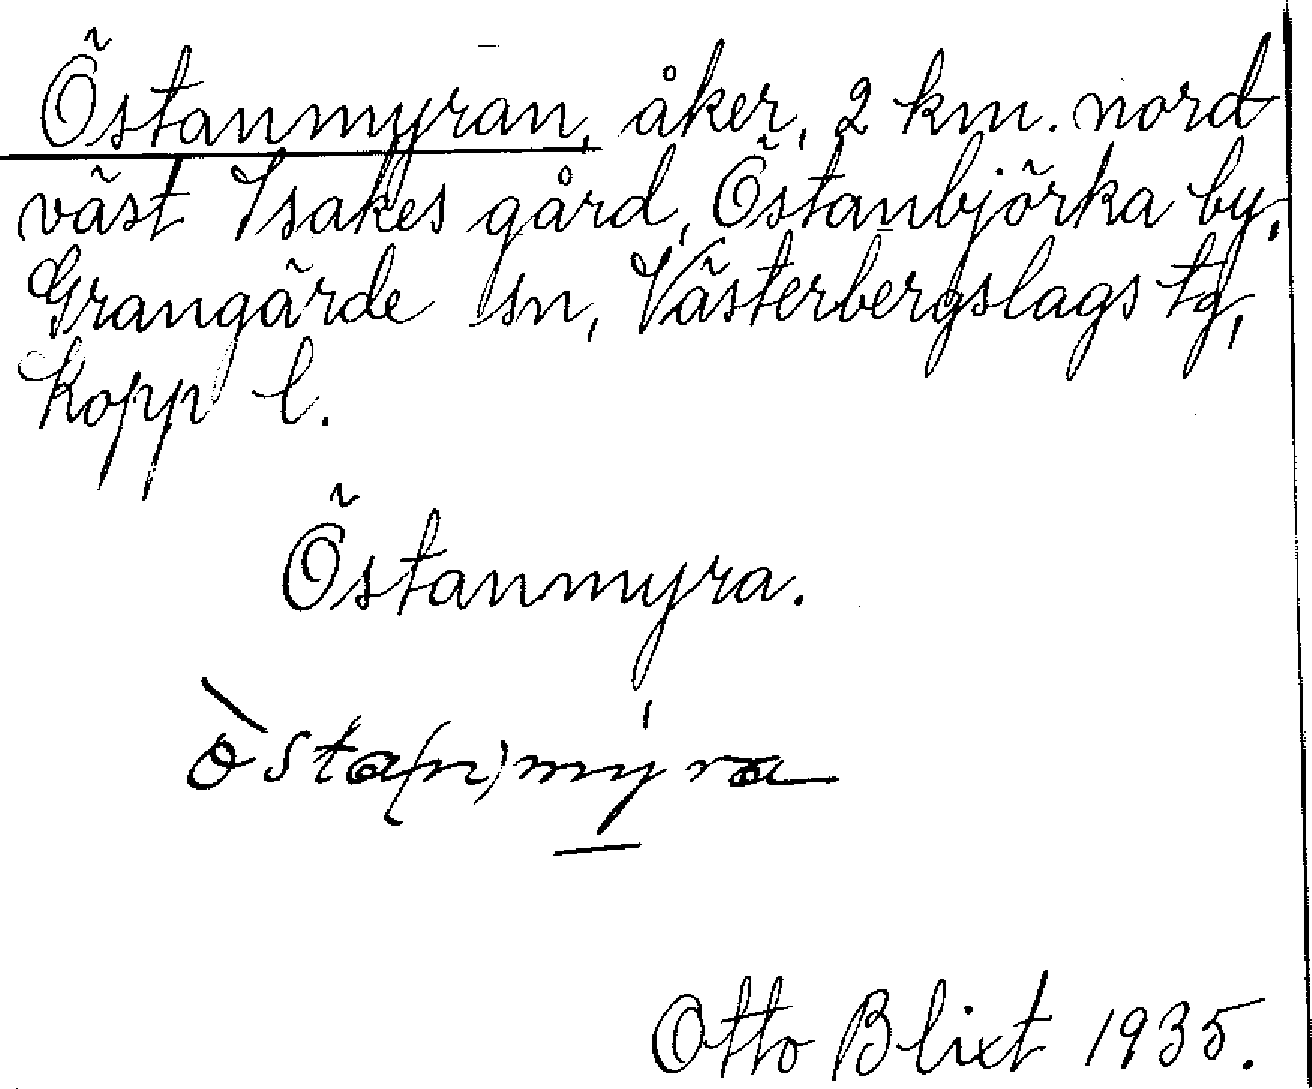 Östanmyran, åker, 2 km. nord
väst Isakes gård, Östanbjörka by,
Grangärde sn, Västerbergslags tg,
Kopp l.
Östanmyra.
òsta(n)mýra
Otto Blixt 1935.